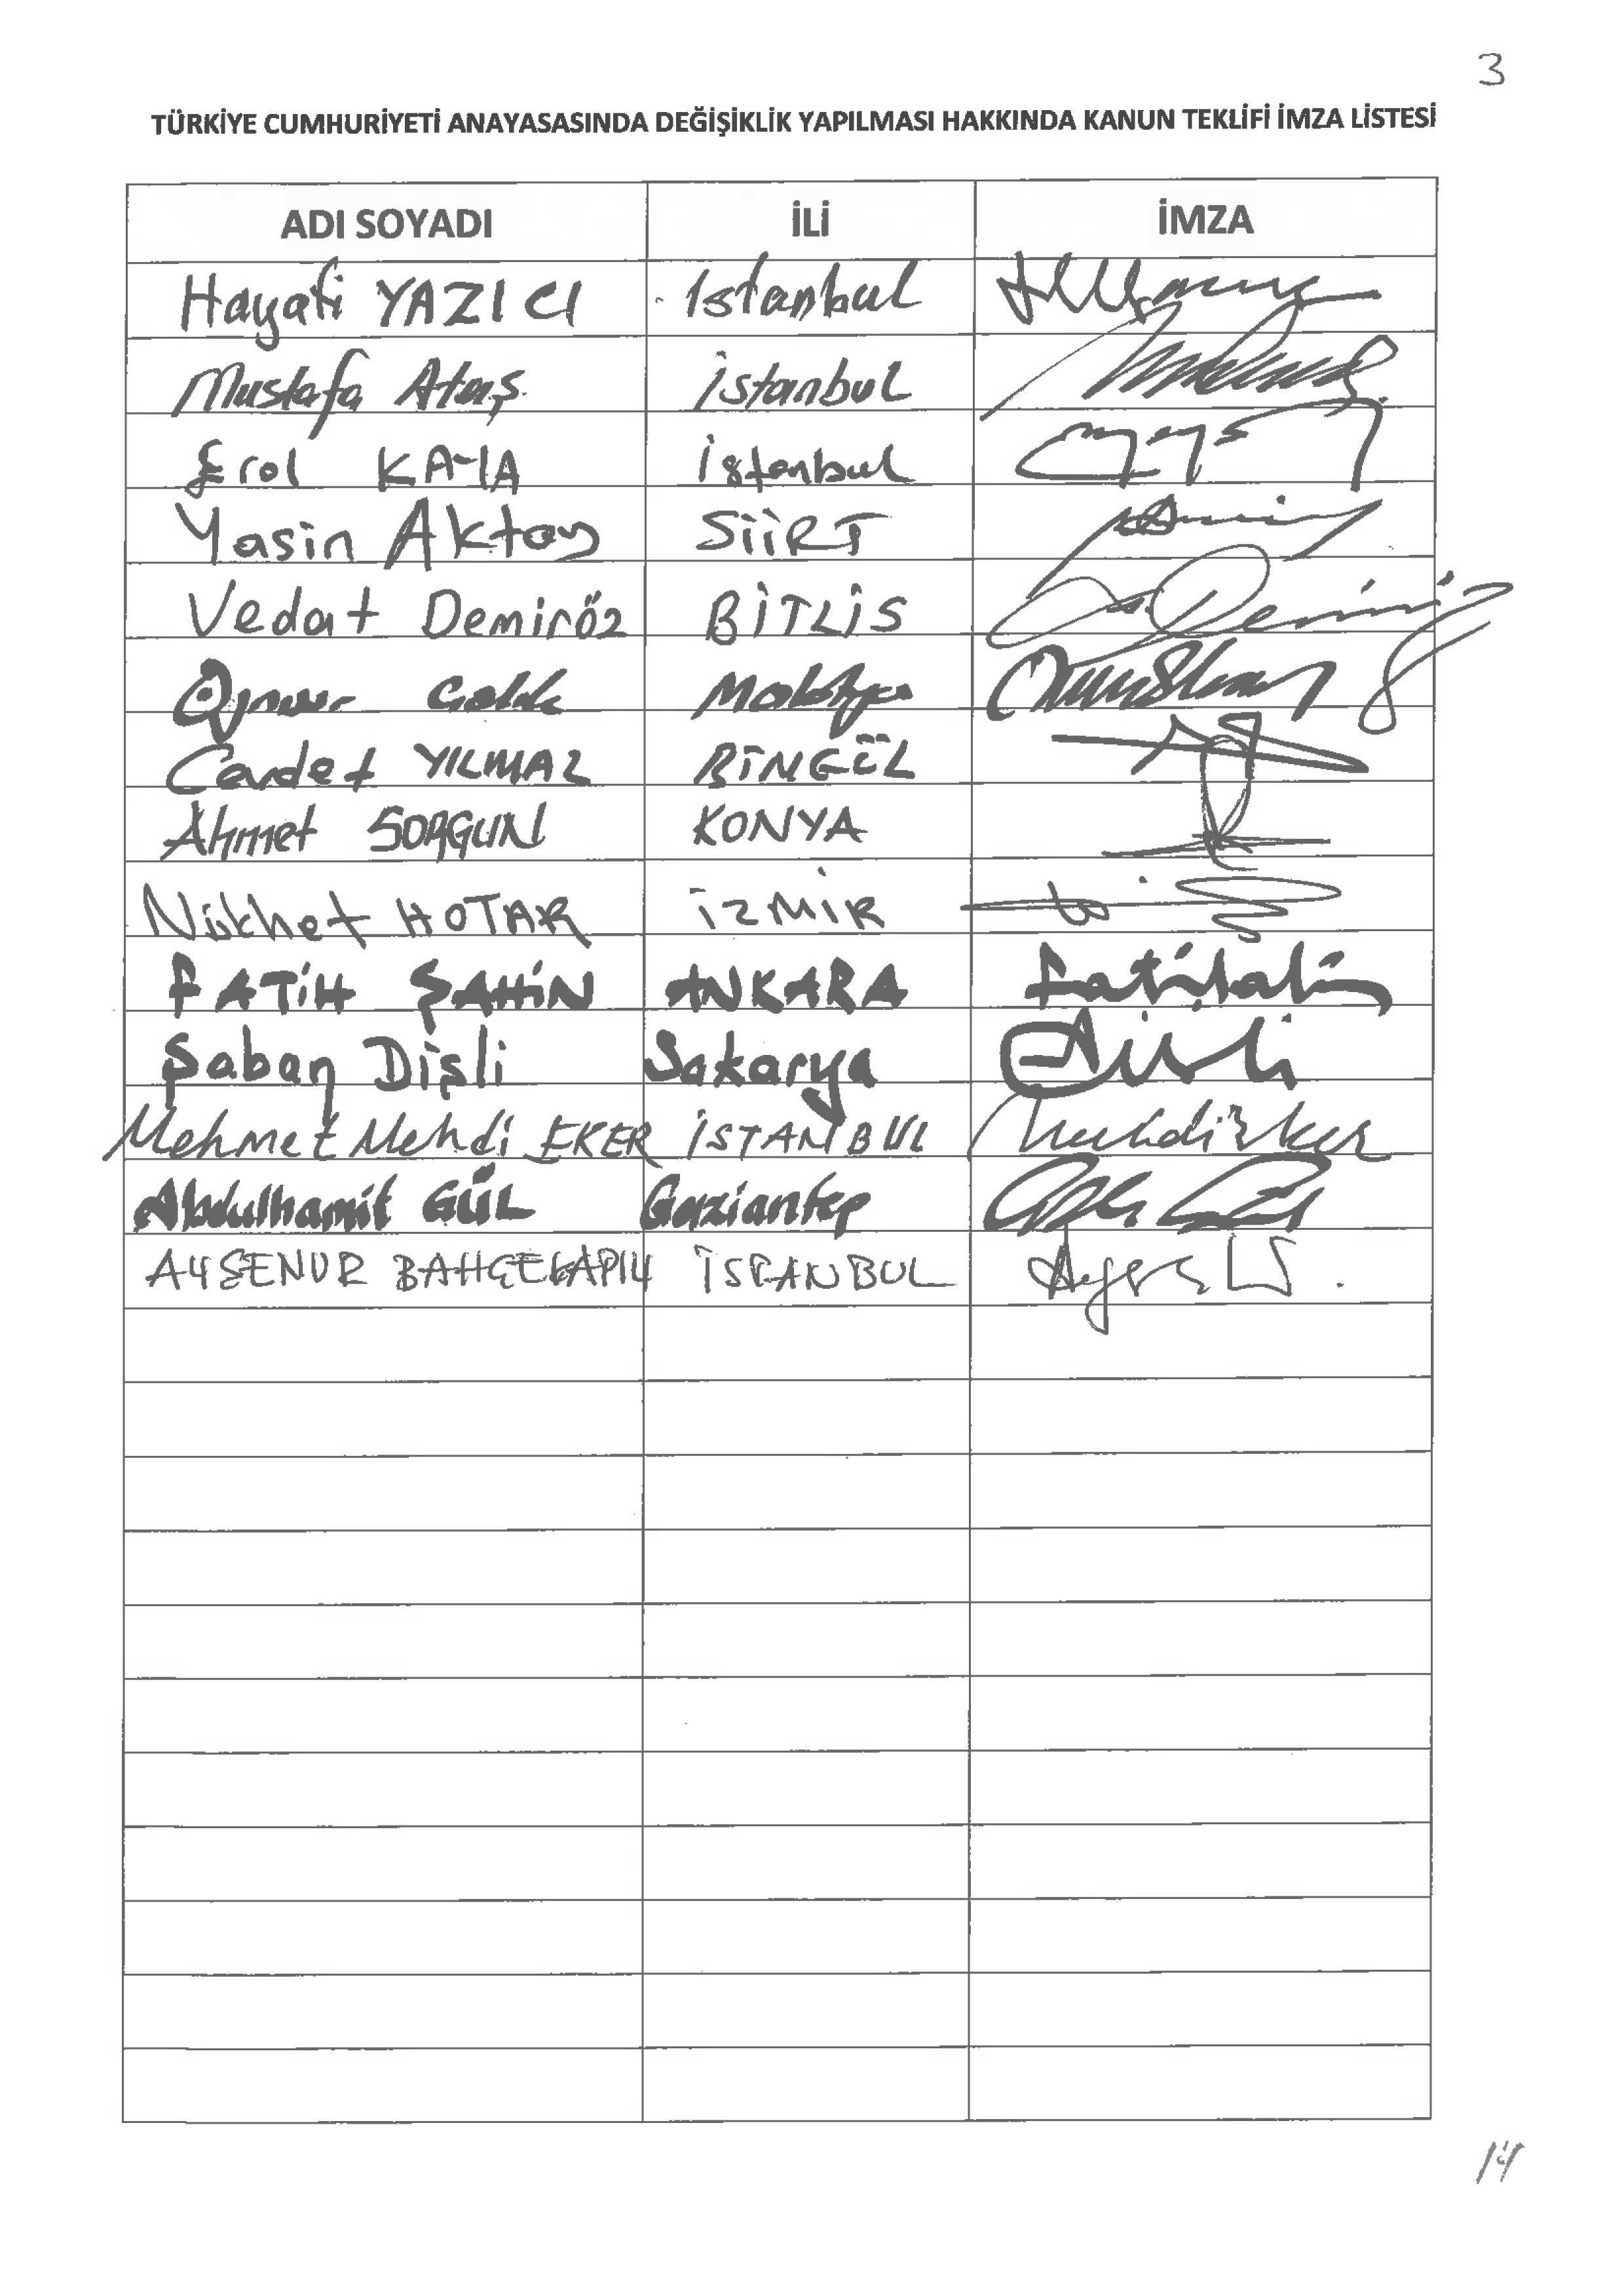 3
TÜRKİYE CUMHURİYETİ ANAYASASINDA DEĞİŞİKLİK YAPILMASI HAKKINDA KANUN TEKLİFİ İMZA LİSTESİ
ADI SOYADI İLİ İMZA
Hayati YAZICI Istanbul
Mustafa Ataş İstanbul
Erol KAYA İstanbul
Yasin Aktay SİİRT
Vedat Demiröz BİTLİS
Öznur Çalık Malatya
Cevdet YILMAZ BİNGÖL
Ahmet SORGUN KONYA
Nükhet HOTAR İZMİR
FATİH ŞAHİN ANKARA
Şaban Dişli Sakarya Dişli
Mehmet Mehdi EKER İSTANBUL
Abdulhamit GÜL Gaziantep
AYŞENUR BAHÇEKAPILI İSTANBUL
14